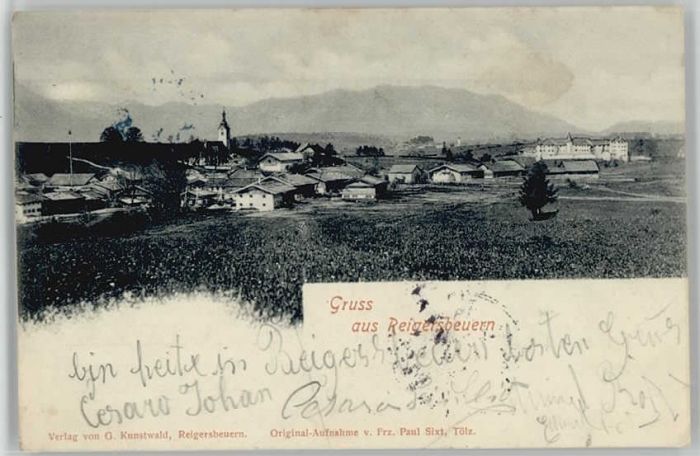 Gruss
aus Reigersbeuern
bin heite in Reigersbeuern besten Grus
Cesaro Johan
Verlag von G. Kunstwald, Reigersbeuern. Original-Aufnahme v. Frz. Paul Sixt, Tölz.